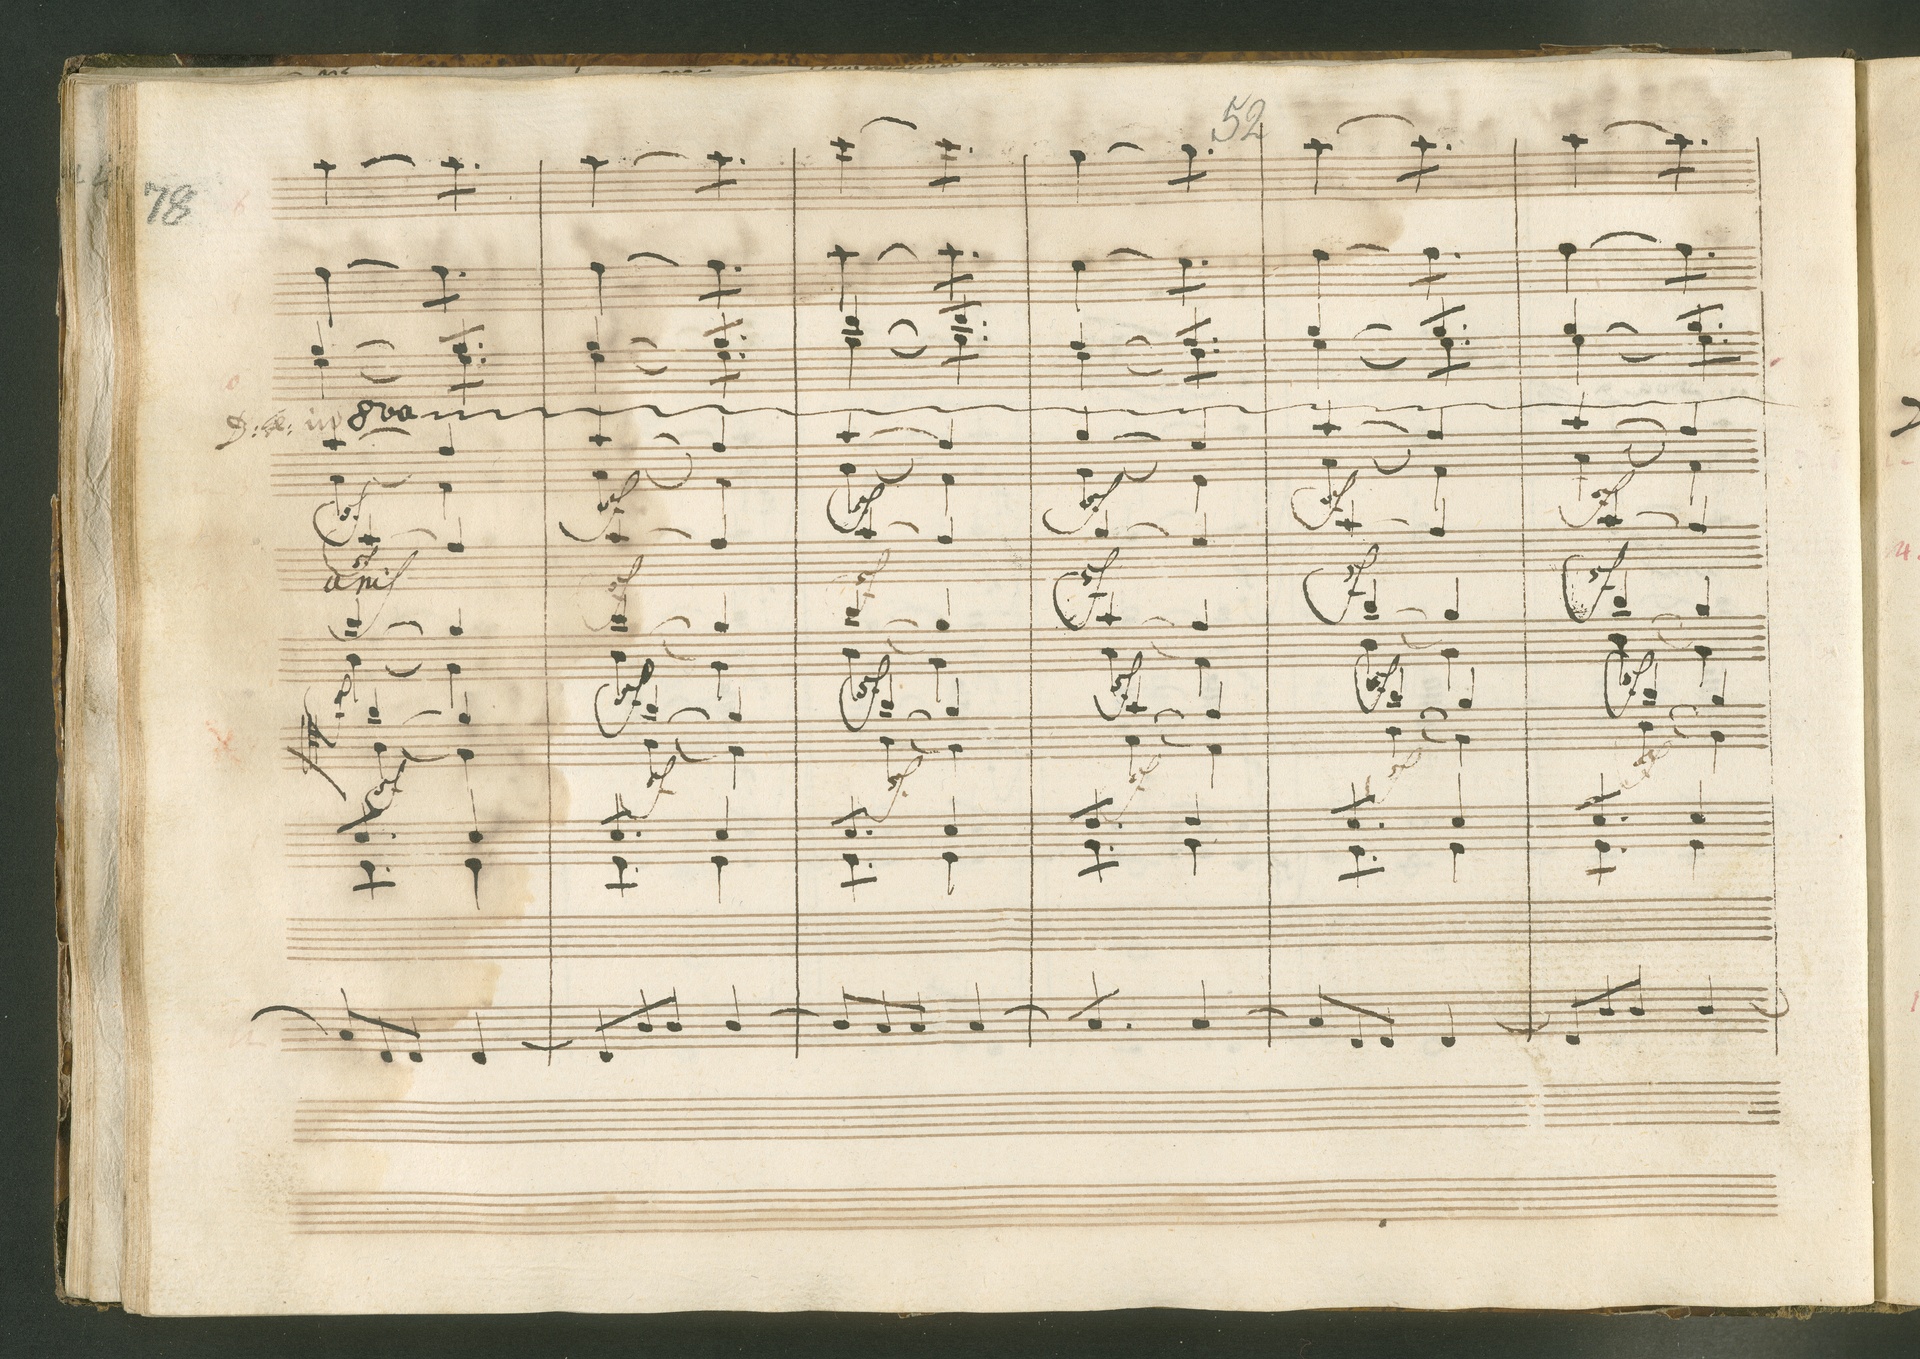 52
78
8va
sf sf sf sf sf sf
unis
sf sf sf sf sf
sf sf sf sf sf
sf sf sf sf sf sf